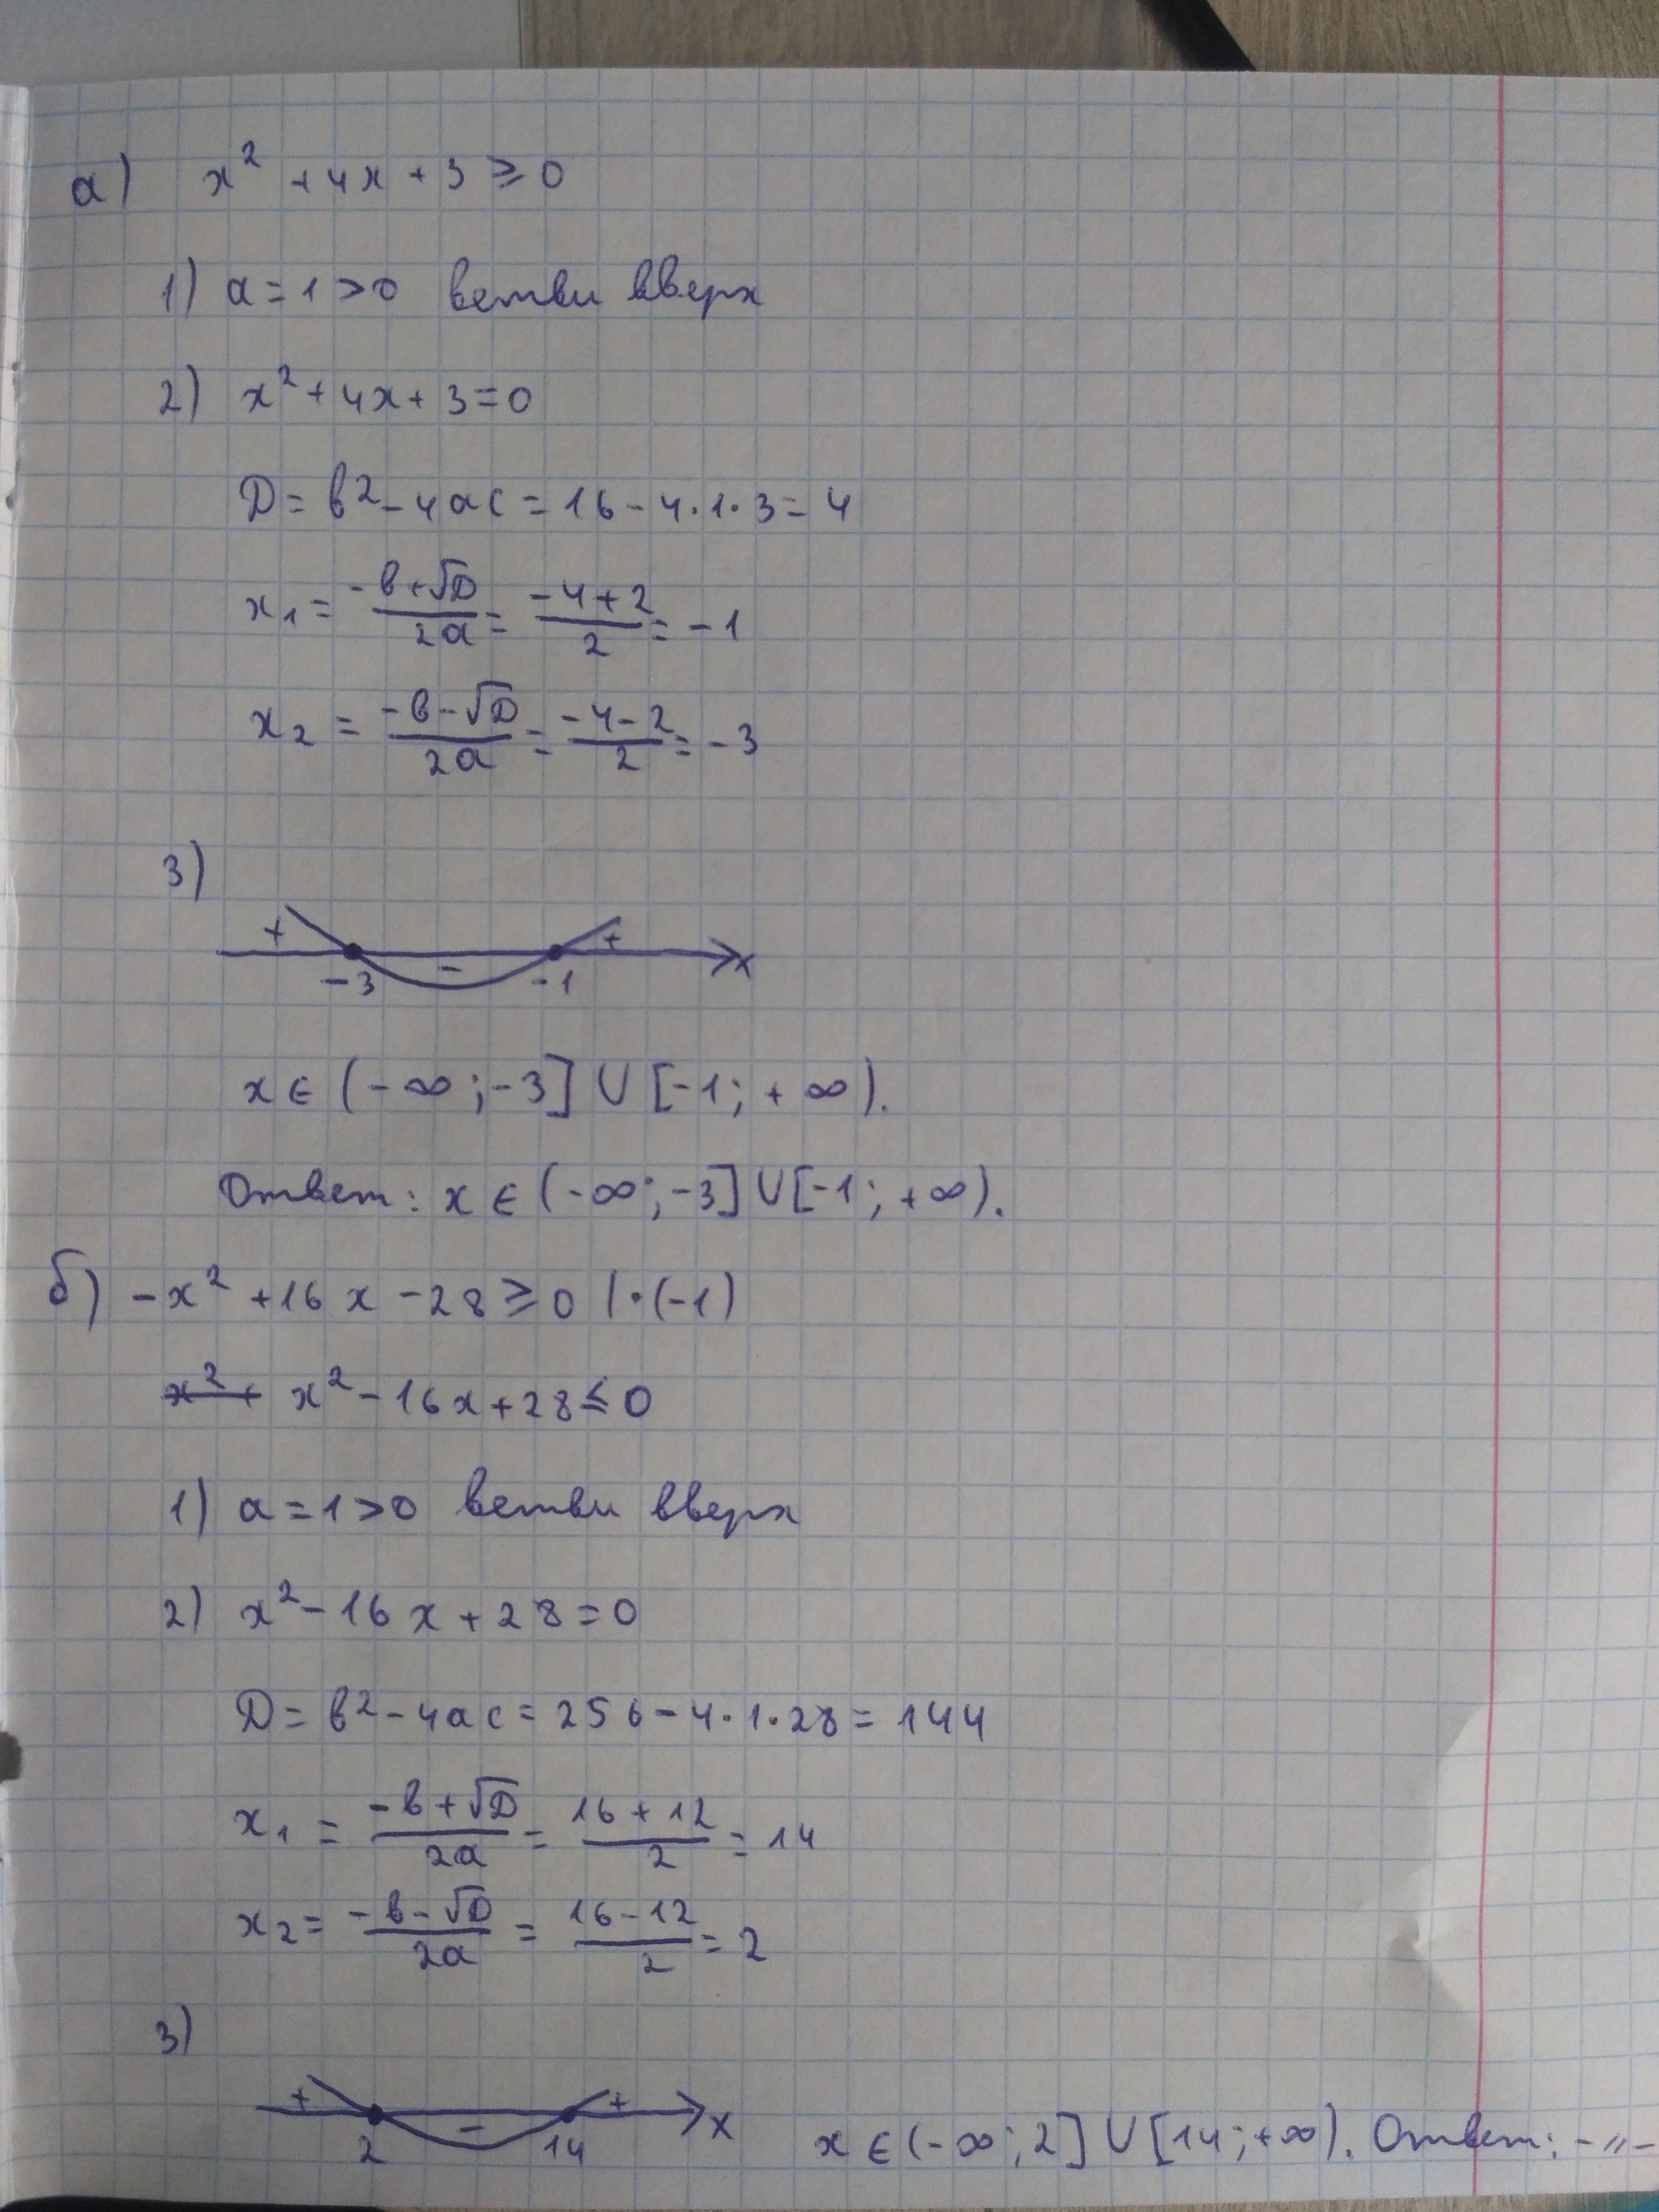 а) x² + 4x + 3 ≥ 0
1) a = 1 > 0 ветви вверх
2) x² + 4x + 3 = 0
D = b² - 4ac = 16 - 4·1·3 = 4
x₁ = (-b + √D)/(2a) = (-4 + 2)/2 = -1
x₂ = (-b - √D)/(2a) = (-4 - 2)/2 = -3
3)
+ - + x
-3 -1
x ∈ (-∞; -3] ∪ [-1; +∞).
Ответ: x ∈ (-∞; -3] ∪ [-1; +∞).
б) -x² + 16x - 28 ≥ 0 | · (-1)
x² + x² - 16x + 28 ≤ 0
1) a = 1 > 0 ветви вверх
2) x² - 16x + 28 = 0
D = b² - 4ac = 256 - 4·1·28 = 144
x₁ = (-b + √D)/(2a) = (16 + 12)/2 = 14
x₂ = (-b - √D)/(2a) = (16 - 12)/2 = 2
3)
+ - + x
2 14 x ∈ (-∞; 2] ∪ [14; +∞). Ответ: -〃-